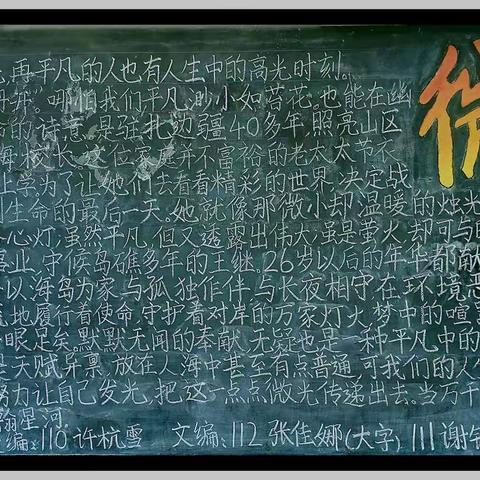 再平凡的人也有人生中的高光时刻。
哪怕我们平凡、渺小如苔花。也能在幽
的诗意。是驻扎边疆40多年,照亮山区
校长,这位家庭并不富裕的老太太节衣
上学为了让她们去看看精彩的世界,决定战
生命的最后一天。她就像那微小却温暖的烛光
心灯,虽然平凡,但又透露出伟大,虽是萤火,却可与
事业,守候岛礁多年的王继。26岁以后的年华都献
以海岛为家与孤独作伴,与长夜相守在环境恶
地履行着使命,守护着对岸的万家灯火梦中的喧
眼足矣,默默无闻的奉献,无疑也是一种平凡中的
天赋异禀,放在人海中甚至有点普通,可我们的人
努力让自己发光,把这一点点微光传递出去。当万千
星河。
编:110 许杭雪 文编:112 张佳娜(大字) 111 谢